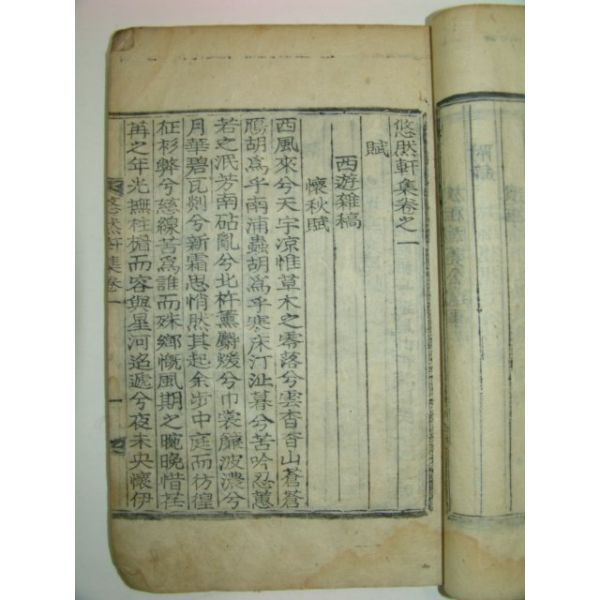 悠然軒集卷之一
賦
西遊雜稿
懷秋賦
西風來兮天宇凉惟草木之零落兮雲杳杳山蒼蒼
鴈胡爲乎南浦蟲胡爲乎寒床汀沚暮兮苦吟忍蕙
若之泯芳南砧亂兮北杵薰麝煖兮巾裳簾波濃兮
月華碧瓦剡兮新霜思悄然其起余步中庭而彷徨
征衫弊兮慈線苦爲誰而殊鄕慨風期之晼晩惜荏
苒之年光撫柱楣而容與星河迢遞兮夜未央懷伊
悠然軒集卷一
一
附錄